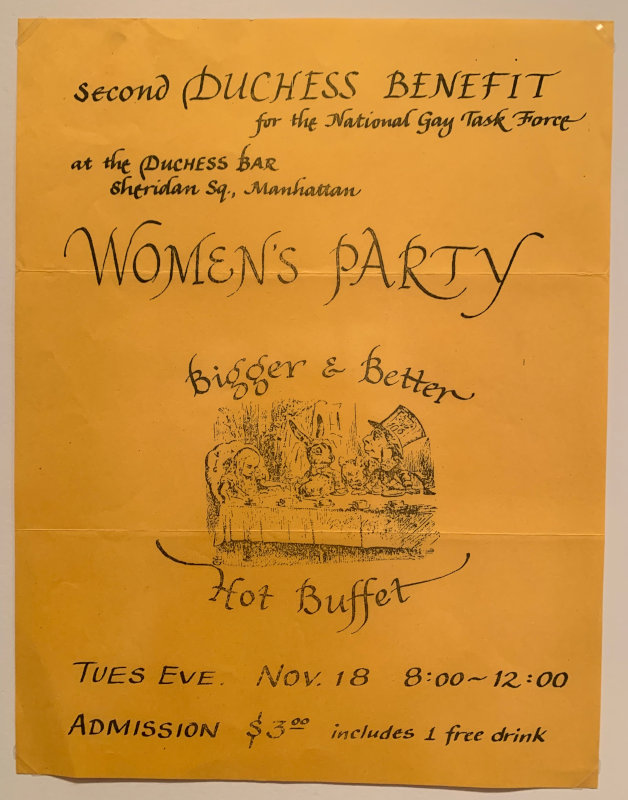 second DUCHESS BENEFIT
for the National Gay Task Force
at the DUCHESS BAR
Sheridan Sq., Manhattan
WOMEN'S PARTY
Bigger & Better
Hot Buffet
TUES EVE. NOV. 18 8:00~12:00
ADMISSION $3.00 includes 1 free drink